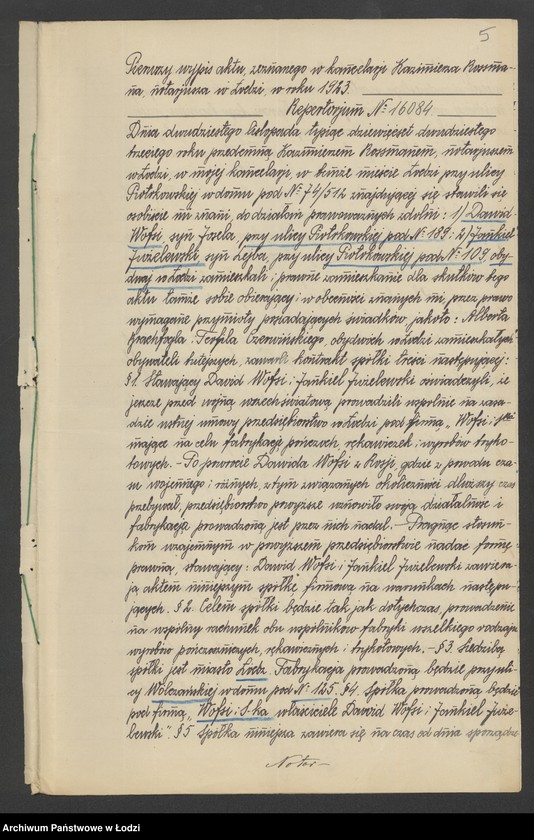 5
Pierwszy wypis aktu, zeznanego w kancelarji Kazimierza Rossma-
na, notarjusza w Łodzi, w roku 1923.
Repertorjum № 16084
Dnia dwudziestego listopada tysiąc dziewięćset dwudziestego
trzeciego roku przedemną Kazimierzem Rossmanem, notarjuszem
w Łodzi, w mojej kancelarji, w temże mieście Łodzi przy ulicy
Piotrkowskiej w domu pod № 74/512 znajdującej się stawili się
osobiście mi znani, do działań prawoważnych zdolni: 1) Dawid
Wofsi, syn Josela, przy ulicy Piotrkowskiej pod № 189; 2) Jankiel
Fiszelewski, syn Lejba, przy ulicy Piotrkowskiej pod № 109, oby-
dwaj w Łodzi zamieszkali i prawne zamieszkanie dla skutków tego
aktu tamże sobie obierający i w obecności znanych mi, przez prawo
wymagane przymioty posiadających świadków, jakoto: Alberta
i Teofila Czerwińskiego, obydwóch w Łodzi zamieszkałych
obywateli tutejszych, zawarli kontrakt spółki treści następującej:
§1. Stawający Dawid Wofsi i Jankiel oświadczyli, że
jeszcze przed wojną wszechświatową prowadzili wspólnie na zasa-
dzie ustnej umowy przedsiębiorstwo w Łodzi pod firmą „Wofsi i S-ka"
mające na celu fabrykację pończoch, rękawiczek i wyrobów tryko-
towych. – Po powrocie Dawida Wofsi z Rosji, gdzie z powodu cza-
su wojennego i różnych, z tym związanych okoliczności dłuższy czas
przebywał, przedsiębiorstwo powyższe wznowiło swoją działalność i
fabrykacja prowadzoną jest przez nich nadal. – Pragnąc stosun-
kom wzajemnym w powyższem przedsiębiorstwie nadać formę
prawną, stawający: Dawid Wofsi i Jankiel zawiera-
ją aktem niniejszym spółkę firmową na warunkach następu-
jących. §2. Celem spółki będzie tak jak dotychczas, prowadzenie
na wspólny rachunek obu wspólników fabryki wszelkiego rodzaju
wyrobów pończoszniczych, rękawicznych i trykotowych. – §3. Siedzibą
spółki jest miasto Łódź. Fabrykacja prowadzoną będzie przy uli-
cy Wólczańskiej w domu pod № 125. §4. Spółka prowadzoną będzie
pod firmą „Wofsi i S-ka właściciele Dawid Wofsi i Jankiel
". §5 Spółka niniejsza zawiera się na czas od dnia sporządze-
Archiwum Państwowe w Łodzi